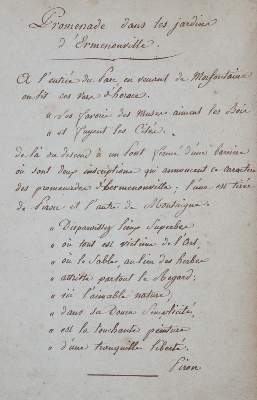 Promenade dans les jardins
d'Ermenonville.
A l'entrée du Parc en venant de Mortfontaine
on lit ces vers d'horace.
" Les favoris des Muses aiment les Bois
" et fuyent les Cités.
de là on descend à un Pont fermé d'une barriere
où sont deux inscriptions qui annoncent le caractere
des promenades d'hermenonville; l'une est tirée
de Piron et l'autre de Montaigne.
" Disparaissez lieux Superbes
" où tout est victime de l'Art,
" où le Sable, au lieu des herbes
" attriste partout le Regard;
" ici l'aimable nature,
" dans sa Douce Simplicité,
" est la touchante peinture
" d'une tranquille liberté.
Piron